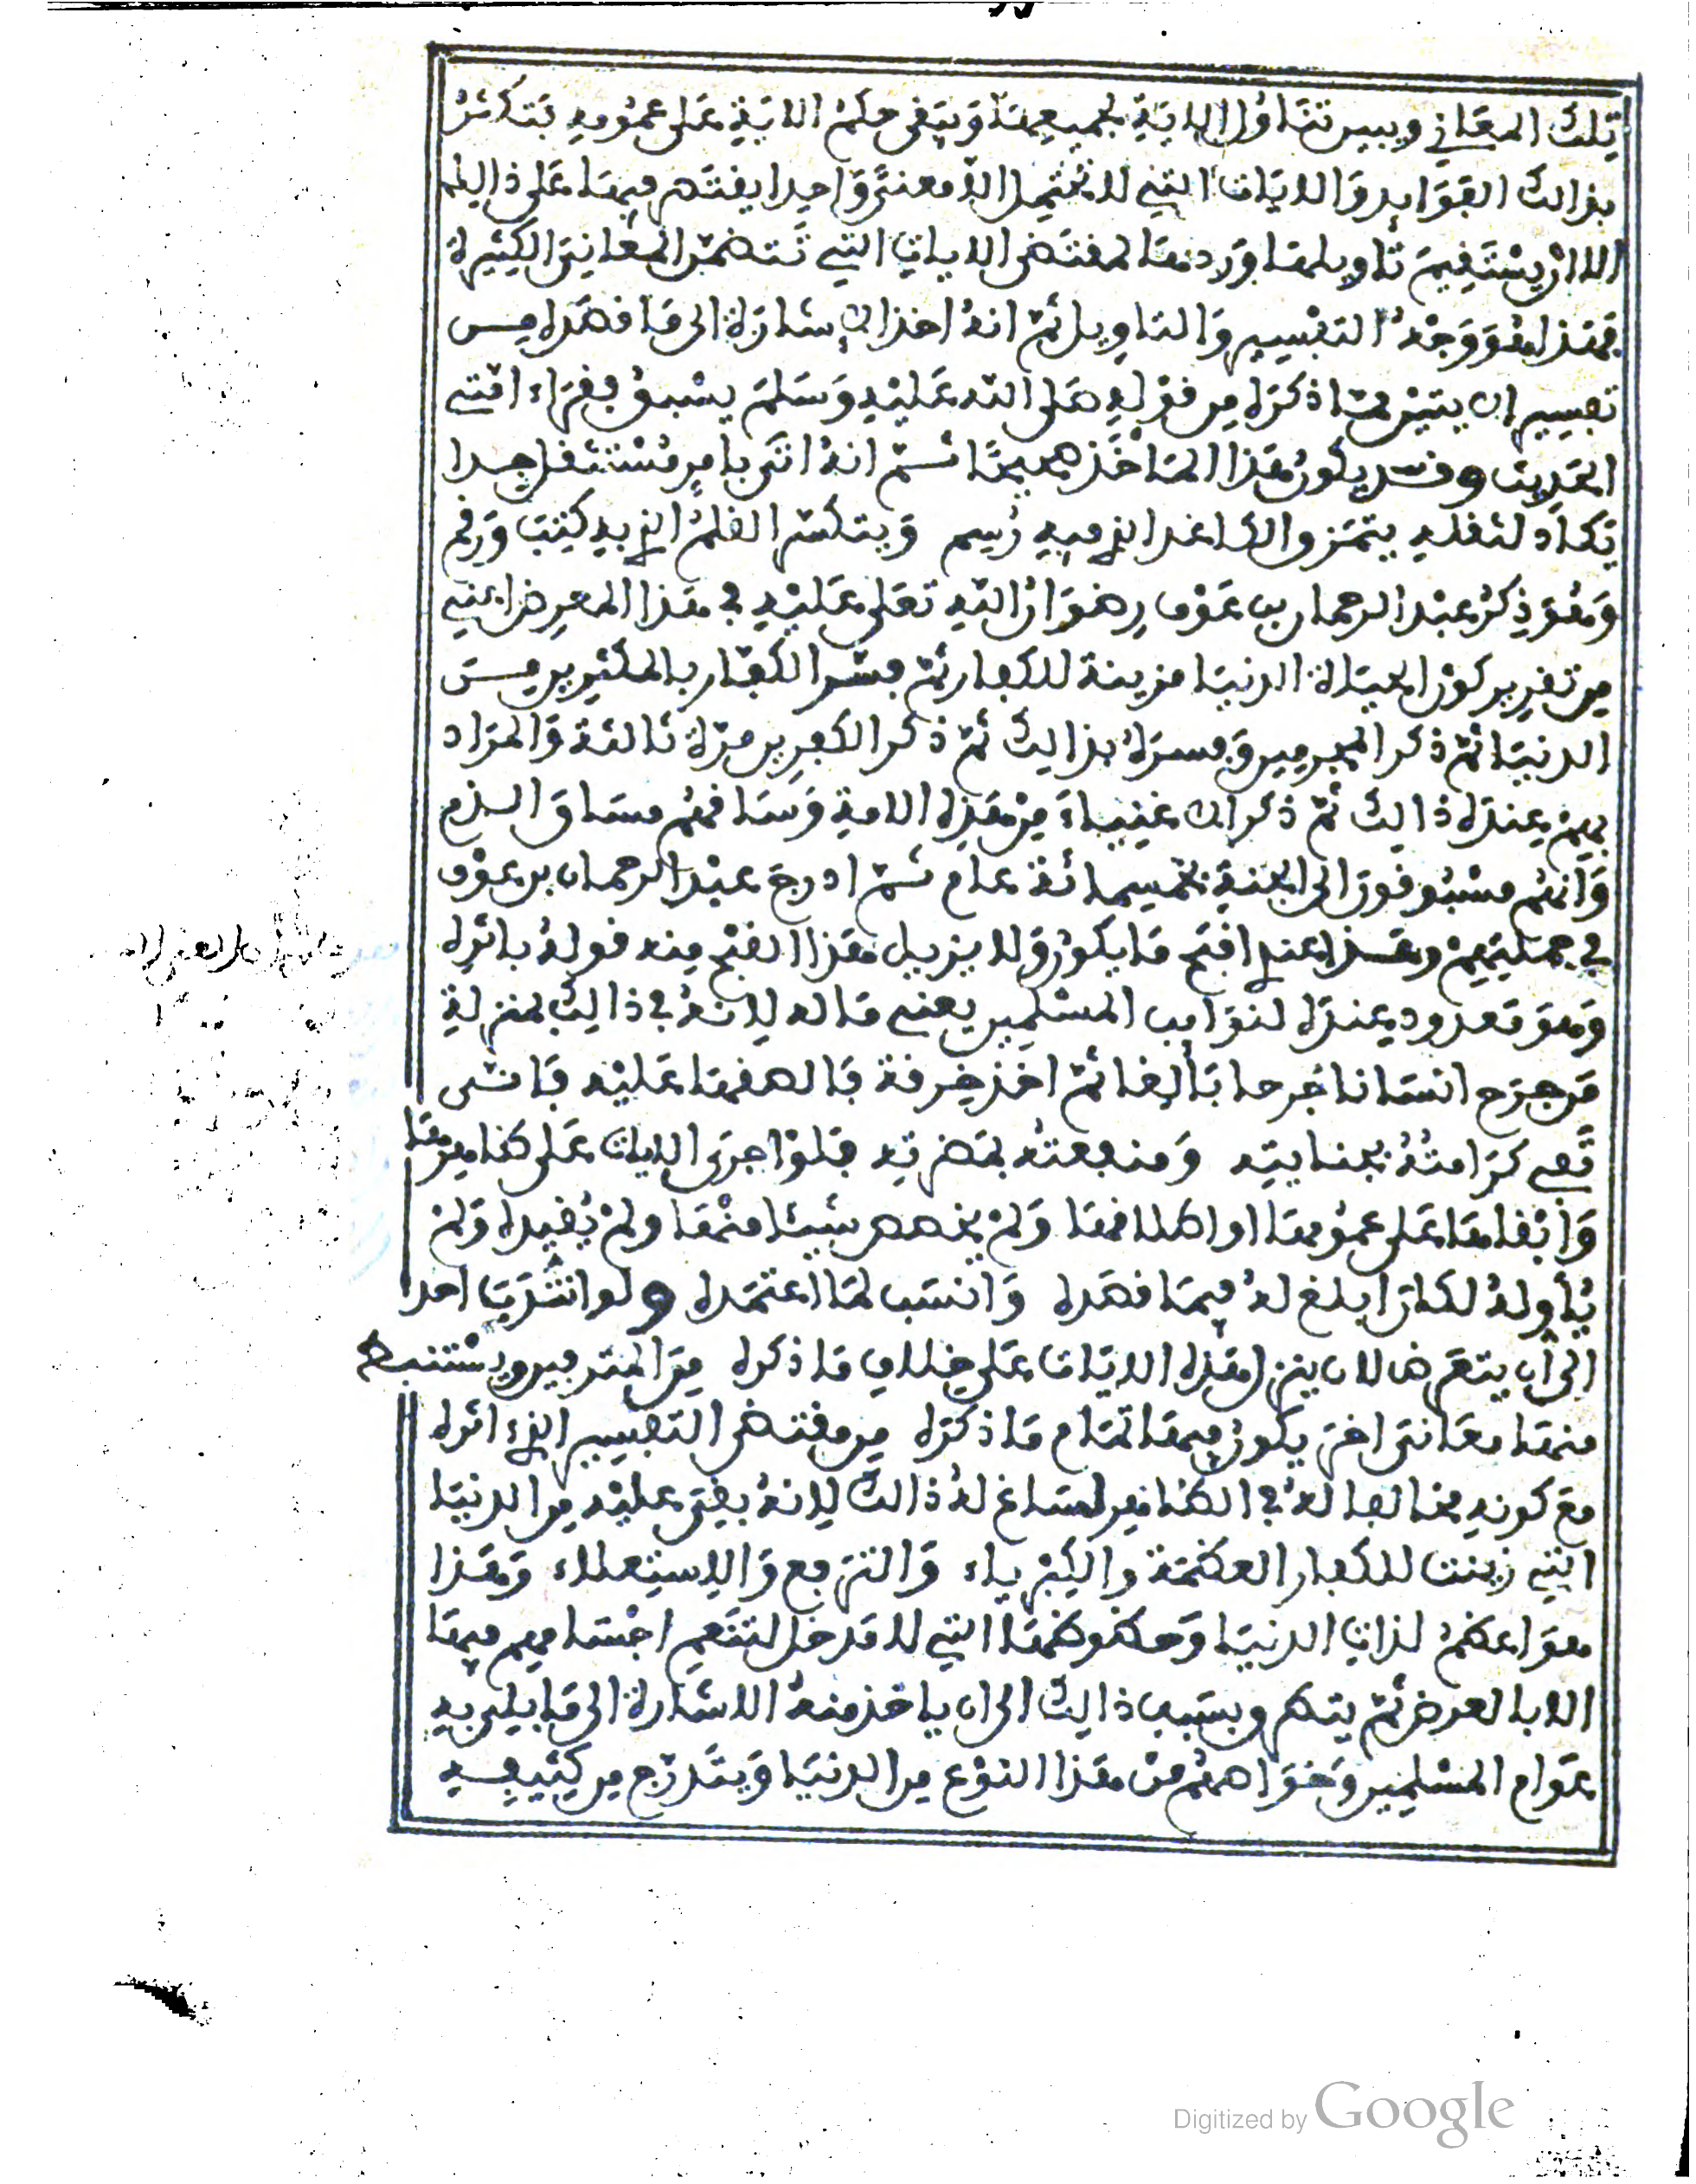 تلك المعاني ويبين تناول الاية لجميعها ويبقى حكم الاية على عمومه فتكثر
بذالك الفوايد والايات التي لا تحتمل الا معنى واحدا يقتصر فيها على ذالك
الا ان يستقيم تاويلها وردها لمقتضى الايات التي تتضمن المعاني الكثيرة
فهذا هو وجه التفسير والتاويل ثم انه اخذ الاشارة الى ما قصده من
تفسير الايتين مما ذكره من قوله صلى الله عليه وسلم يسبق فقراء امتي
الحديث وقد يكون هذا الماخذ صحيحا ثم انه اتى بامر مستثقل جدا
تكاد لثقله يتمزق الكاغد الذي فيه رسم ويتكسر القلم الذي به كتب ورقم
وهو ذكر عبد الرحمان بن عوف رضوان الله تعالى عليه في هذا المعرض اعني
من تقرير كون الحياة الدنيا مزينة للكفار ثم فسر الكفار بالمكثرين من
الدنيا ثم ذكر المجرمين وفسره بذالك ثم ذكر الكافرين مرة ثالثة والمراد
بهم عنده ذالك ثم ذكر الاغنياء من هذه الامة وساقهم مساق الذم
وانهم مسبوقون الى الجنة بخمسمائة عام ثم ادرج عبد الرحمان بن عوف
في جملتهم وهذا عندي اقبح ما يكون ولا يزيل هذا القبح منه قوله باثره
وهو معدود عنده لنوايب المسلمين يعني ماله لانه في ذالك بمنزلة
من جرح انسانا جرحا بالغا ثم اخذ خرقة فالصقها عليه فانى
تفي كرامته بجنايته ومنفعته بمضرته فلو اجرى الايات على ظاهرها
وابقاها على عمومها او اطلاقها ولم يخصص شيئا منها ولم يقيده ولم
يأوله لكان ابلغ له فيما قصده وانسب لما اعتمده ولو انتدب احد
الى ان يتعرض لان ينزل هذه الايات على خلاف ما ذكره من المترفين ويستنبط
منها معاني اخر يكون فيها تمام ما ذكره من مقتضى التفسير الذي اثره
مع كونه مخالفا له في الظاهر لساغ له ذالك لانه بقي عليه من الدنيا
التي زينت للكفار العظمة والكبرياء والترفع والاستعلاء وهذا
هو اعظم لذات الدنيا وحظوظها التي لا مدخل لتنعم اجسامهم فيها
الا بالعرض ثم يتطرق بسبب ذالك الى ان ياخذ منه الاشارة الى ما بلي به
عوام المسلمين وخواصهم من هذا النوع من الدنيا ويتدرج من كثيفه
Digitized by Google